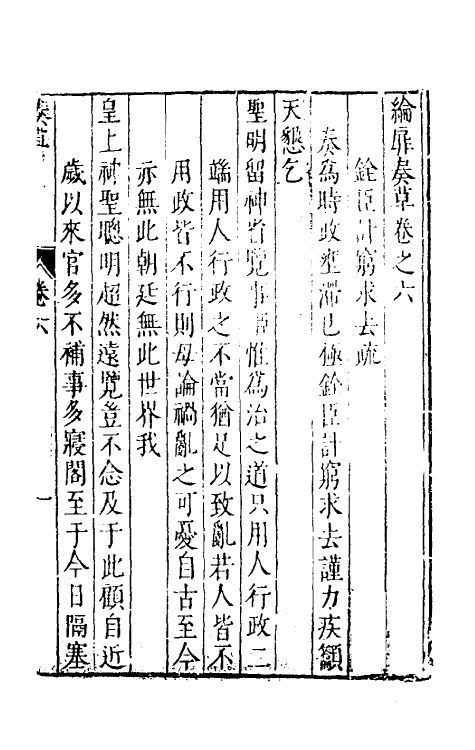 綸扉奏草卷之六
銓臣計窮求去疏
奏爲時政壅滯已極銓臣計窮求去謹力疾籲
天懇乞
聖明留神省覽事臣惟爲治之道只用人行政二
端用人行政之不當猶足以致亂若人皆不
用政皆不行則毋論禍亂之可憂自古至今
亦無此朝廷無此世界我
皇上神聖聰明超然遠覽豈不念及于此顧自近
歲以來官多不補事多寢閣至于今日隔塞
奏草
卷六
一